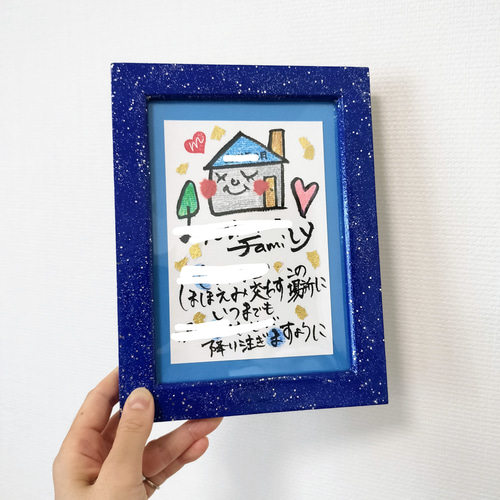 m
月
Family
ほほえみ交わす この場所に
いつまでも
降り注ぎますように